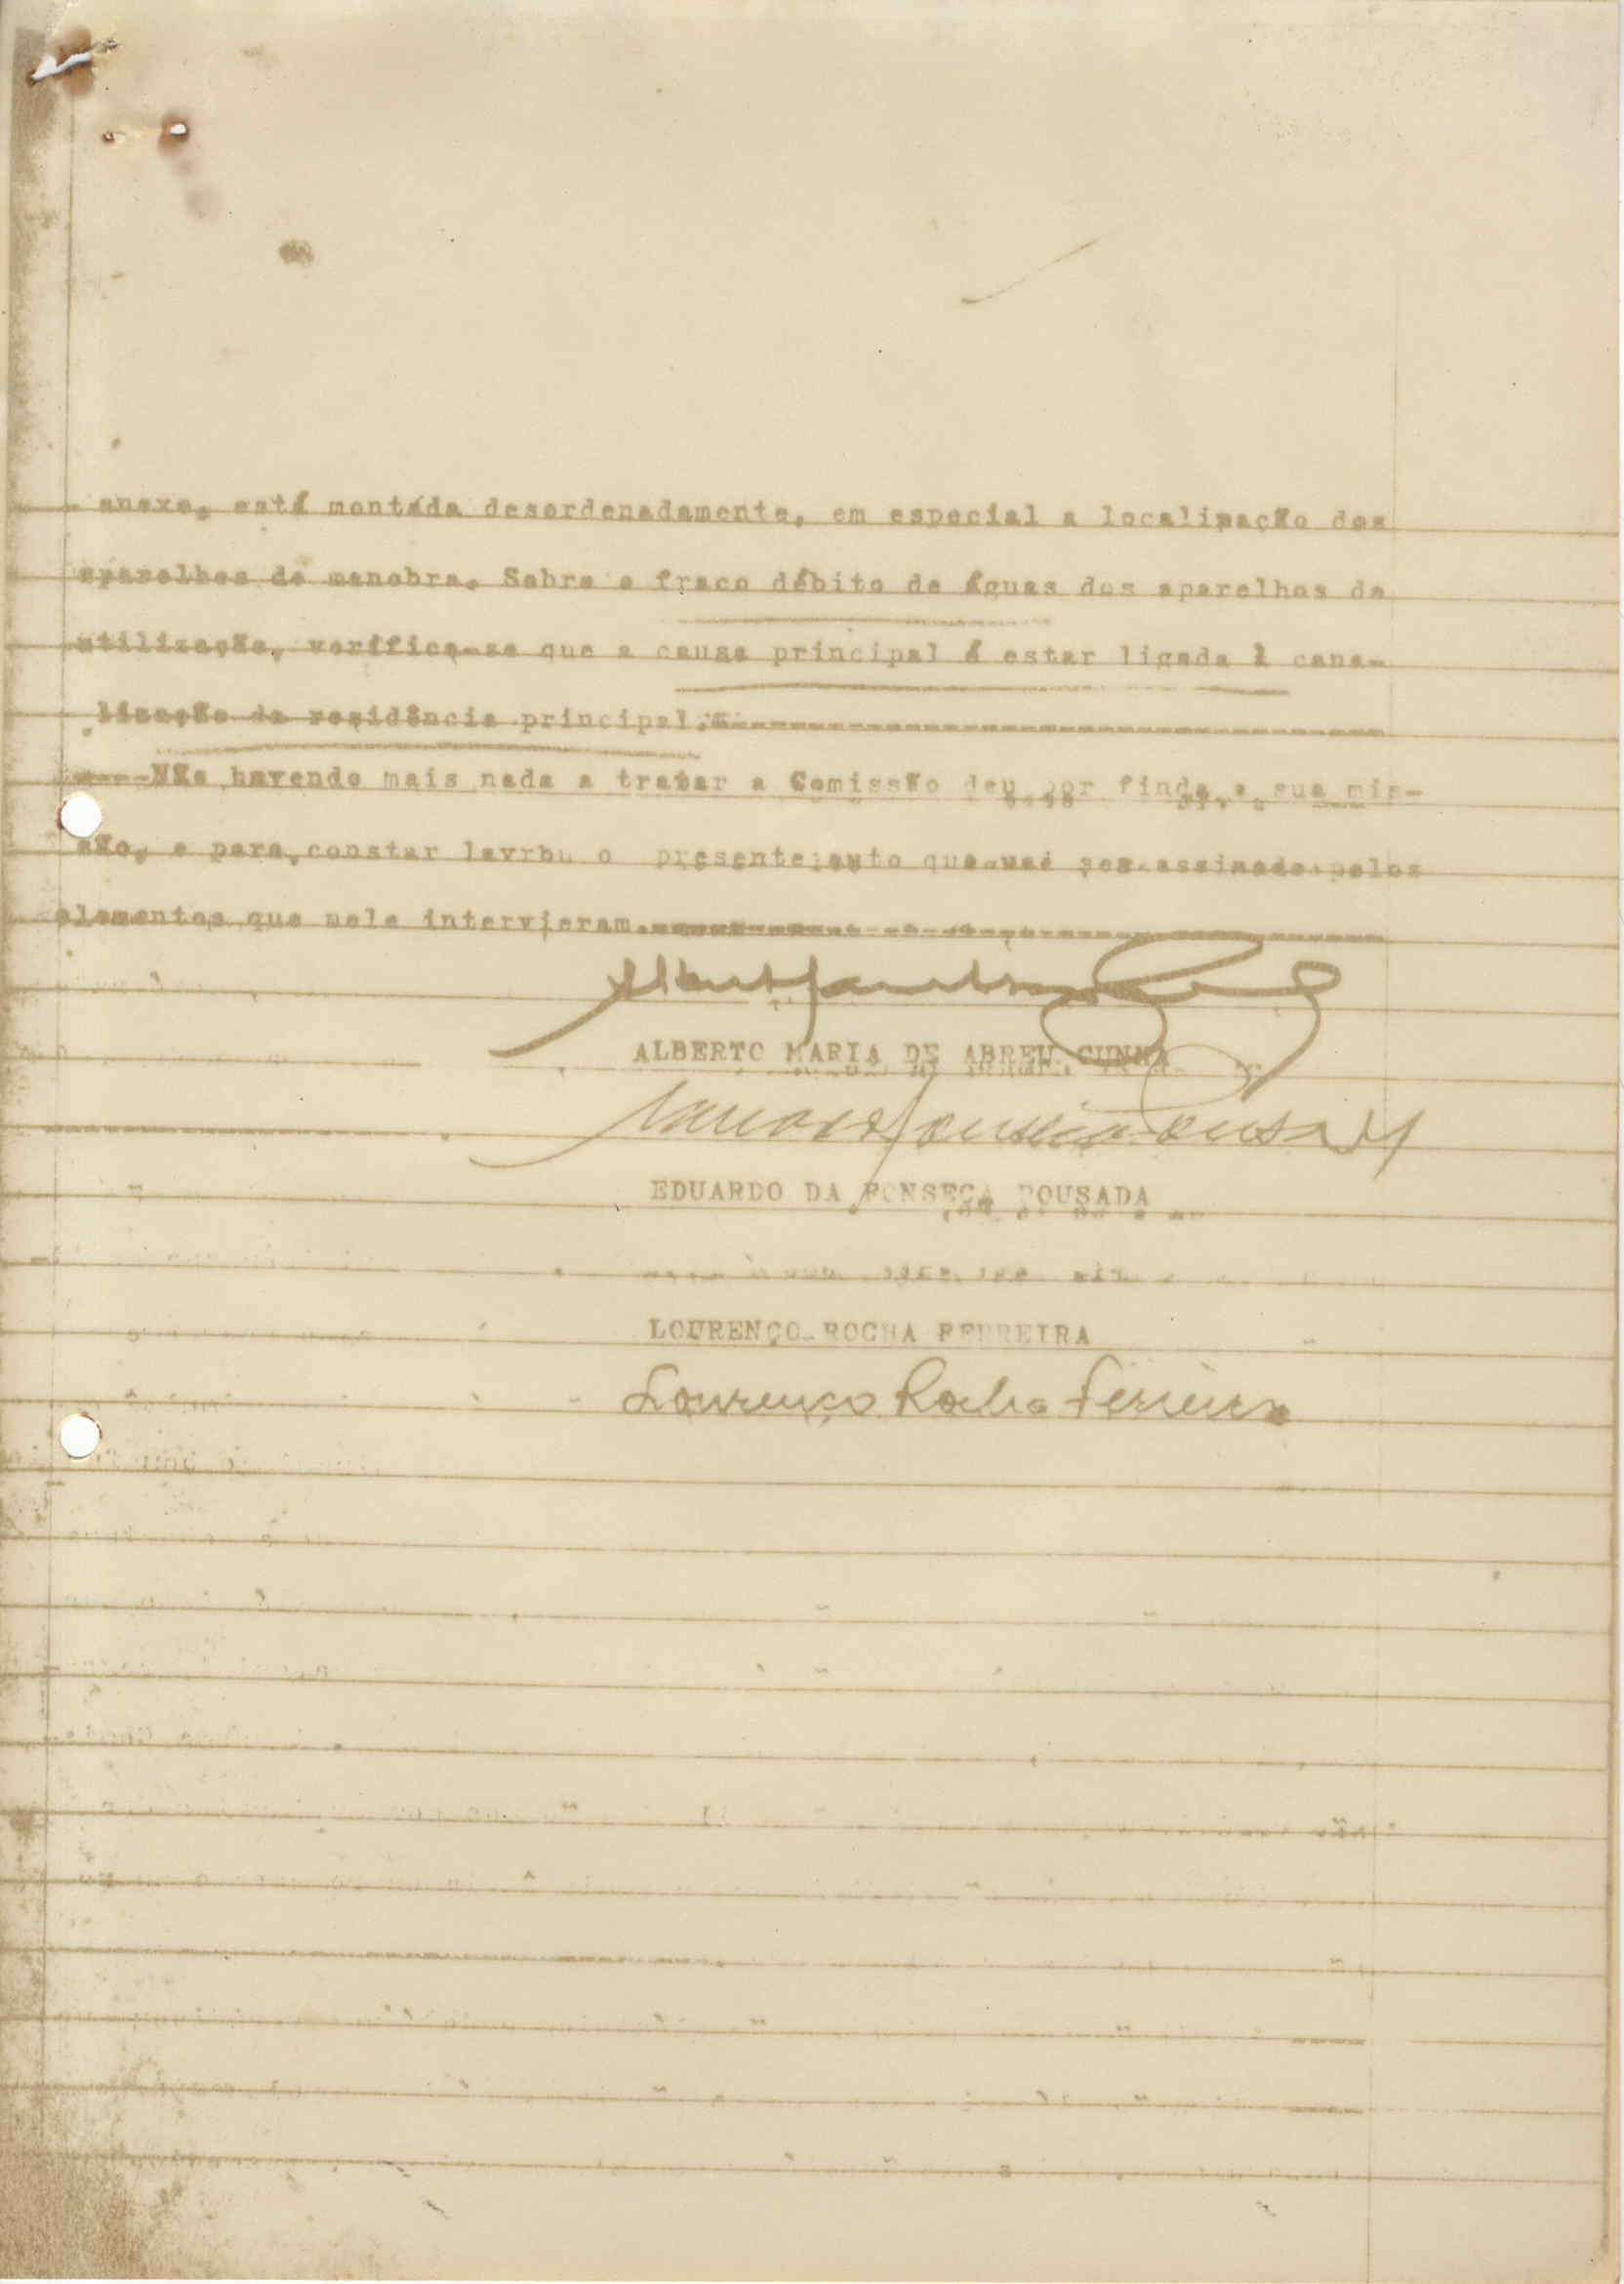 anexo, está montáda desordenadamente, em especial a localização dos
aparelhos de manobra. Sobre o fraco débito de águas dos aparelhos de
utilização, verifica-se que a causa principal é estar ligada à cana-
lização da residência principal.
----Não havendo mais nada a tratar a Comissão deu por finda a sua mis-
são, e para constar lavrou o presente auto que vai ser assinado pelos
elementos que nele intervieram.
ALBERTO MARIA DE ABREU CUNHA
EDUARDO DA FONSECA POUSADA
LOURENÇO ROCHA FERREIRA
Lourenço Rocha Ferreira